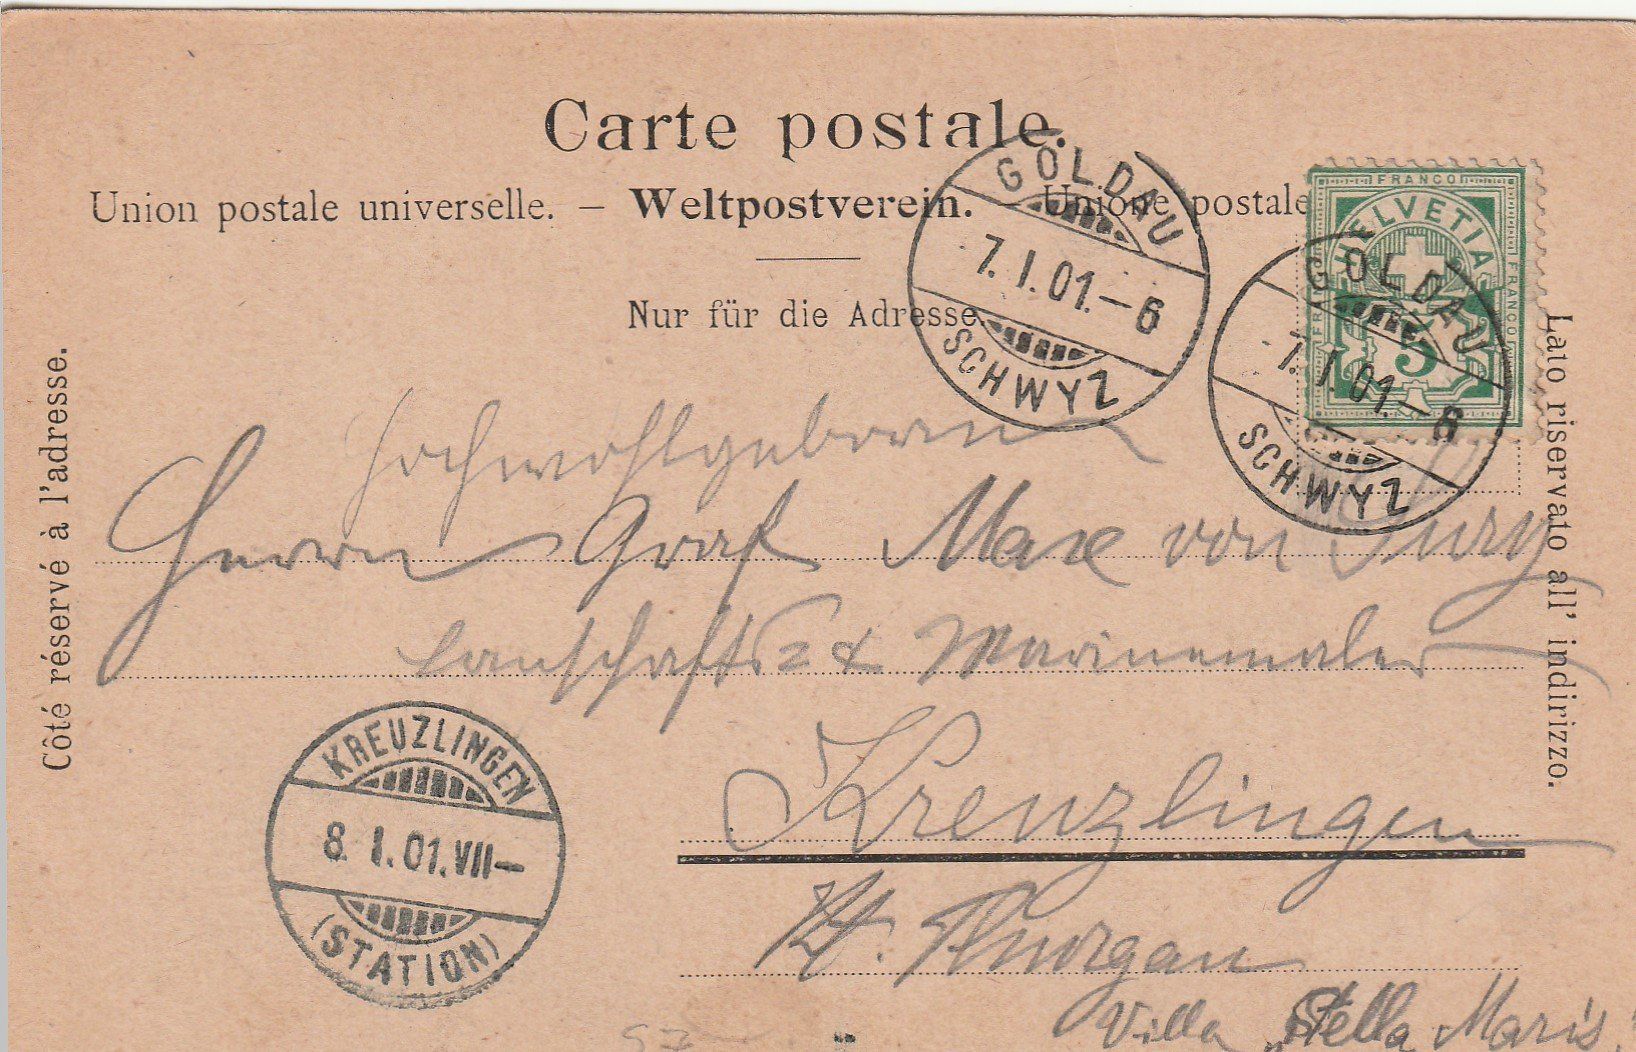 Carte postale.
Union postale universelle. – Weltpostverein. Unione postale
Nur für die Adresse.
Côté réservé à l'adresse.
Lato riservato all' indirizzo.
FRANCO
HELVETIA
FRANCO
FRANCO
5
GOLDAU
7. I. 01. – 6
SCHWYZ
GOLDAU
7. I. 01. – 6
SCHWYZ
Hochwohlgeboren
Herrn Graf Max von
Lanschafts= & Marinemaler
Kreuzlingen
Kt. Thurgau
Villa „Stella Maris"
KREUZLINGEN
8. I. 01. VII –
(STATION)